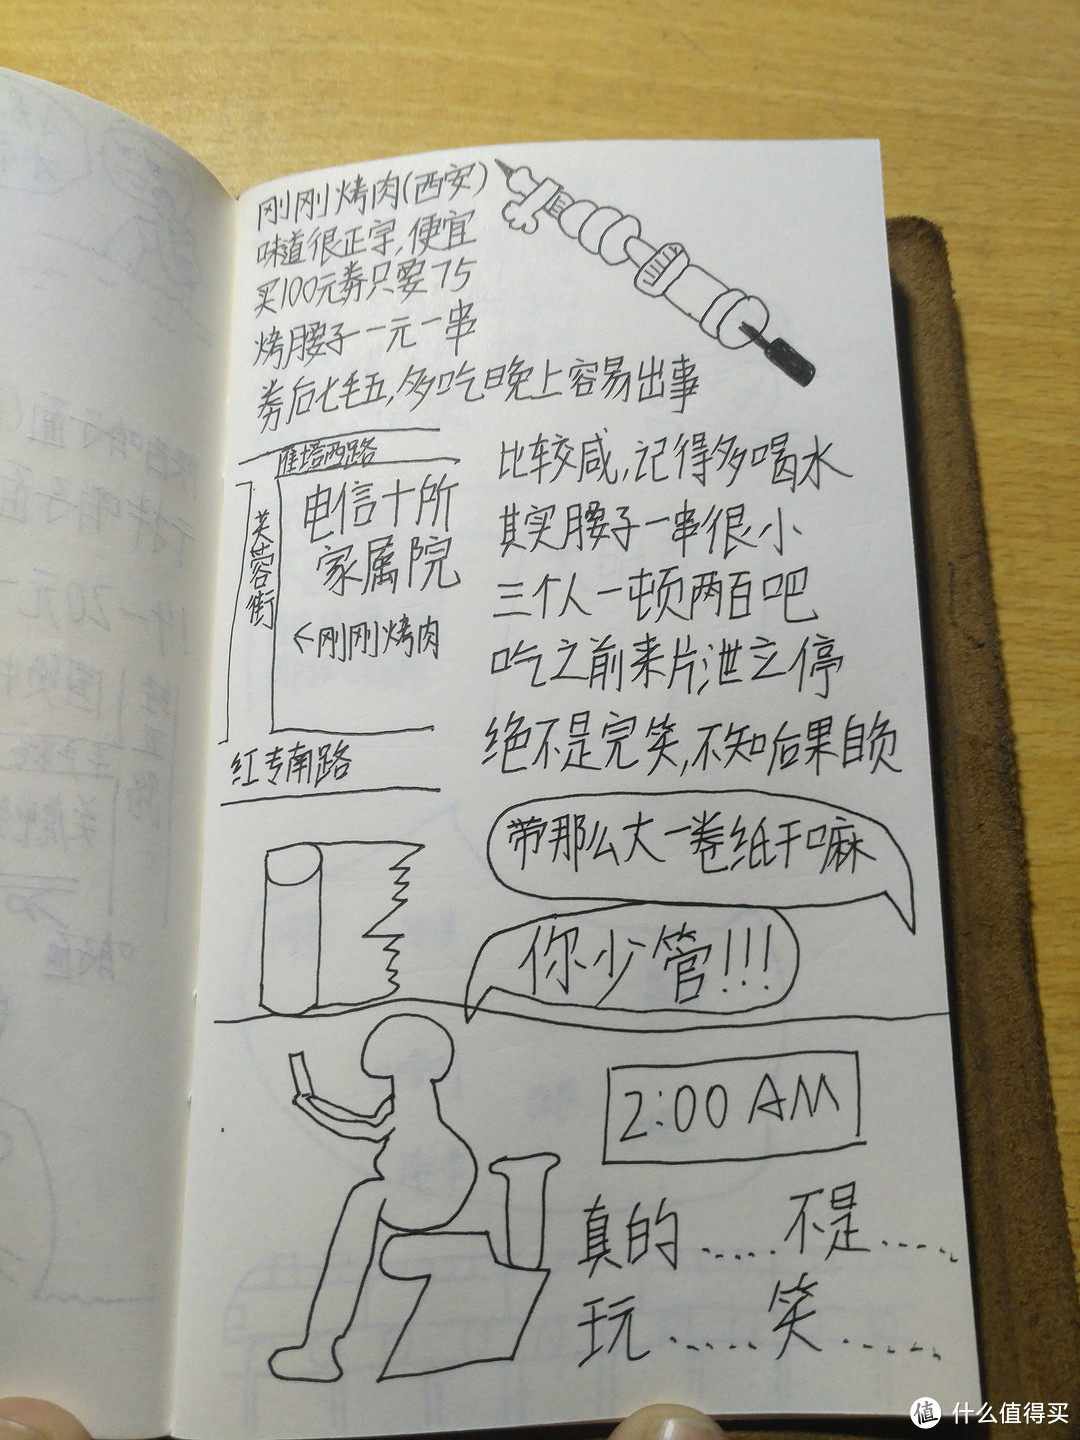 刚刚烤肉(西安)
味道很正宗,便宜
买100元券只要75
烤腰子一元一串
券后七毛五,多吃晚上容易出事
雁塔西路
芙蓉街
电信十所
家属院
←刚刚烤肉
红专南路
比较咸,记得多喝水
其实腰子一串很小
三个人一顿两百吧
吃之前来片泄立停
绝不是完笑,不知后果自负
带那么大一卷纸干嘛
你少管!!!
2:00 AM
真的.....不是.....
玩.....笑.....
值 什么值得买